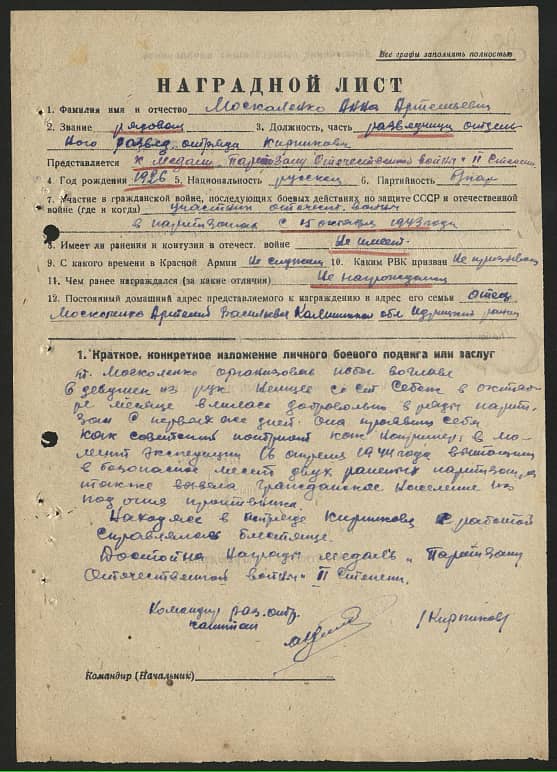 Все графы заполнять полностью
НАГРАДНОЙ ЛИСТ
1. Фамилия имя и отчество Москаленко Анна Артемьевна
2. Звание рядовой 3. Должность, часть разведчица отдель
ного развед. отряда Кирпикова
Представляется к медали „Партизану Отечественной войны" II Степени
4 Год рождения 1926 5. Национальность русская 6. Партийность
7. Участие в гражданской войне, последующих боевых действиях по защите СССР и отечественной
войне (где и когда) участник отечест. войны
в партизанах с 15 октября 1943 года
8. Имеет ли ранения и контузии в отечест. войне Не имеет
9. С какого времени в Красной Армии Не служила 10. Каким РВК призван Не призывалась
11. Чем ранее награждался (за какие отличия) Не награждалась
12. Постоянный домашний адрес представляемого к награждению и адрес его семьи Отец
Москаленко Артемий Васильевич Калининская обл Идрицкий район
1. Краткое, конкретное изложение личного боевого подвига или заслуг
Москаленко организовав побег во главе
6 девушек из рук немцев Себеж в октяб
ре месяце влилась добровольно в ряды парти
зан с первых же дней. Она проявила себя
как советский патриот как например: в мо
мент экспедиции 16 апреля 1944 года вытащила
в безопасное место двух раненых партизан, а
также вывела гражданское население из
под огня противника.
Находясь в отряде Кирпикова с работой
справлялась блестяще.
Достойна награды медаль „Партизану
Отечественной войны" II Степени.
Командир раз. отр.
капитан /Кирпиков/
Командир (Начальник)